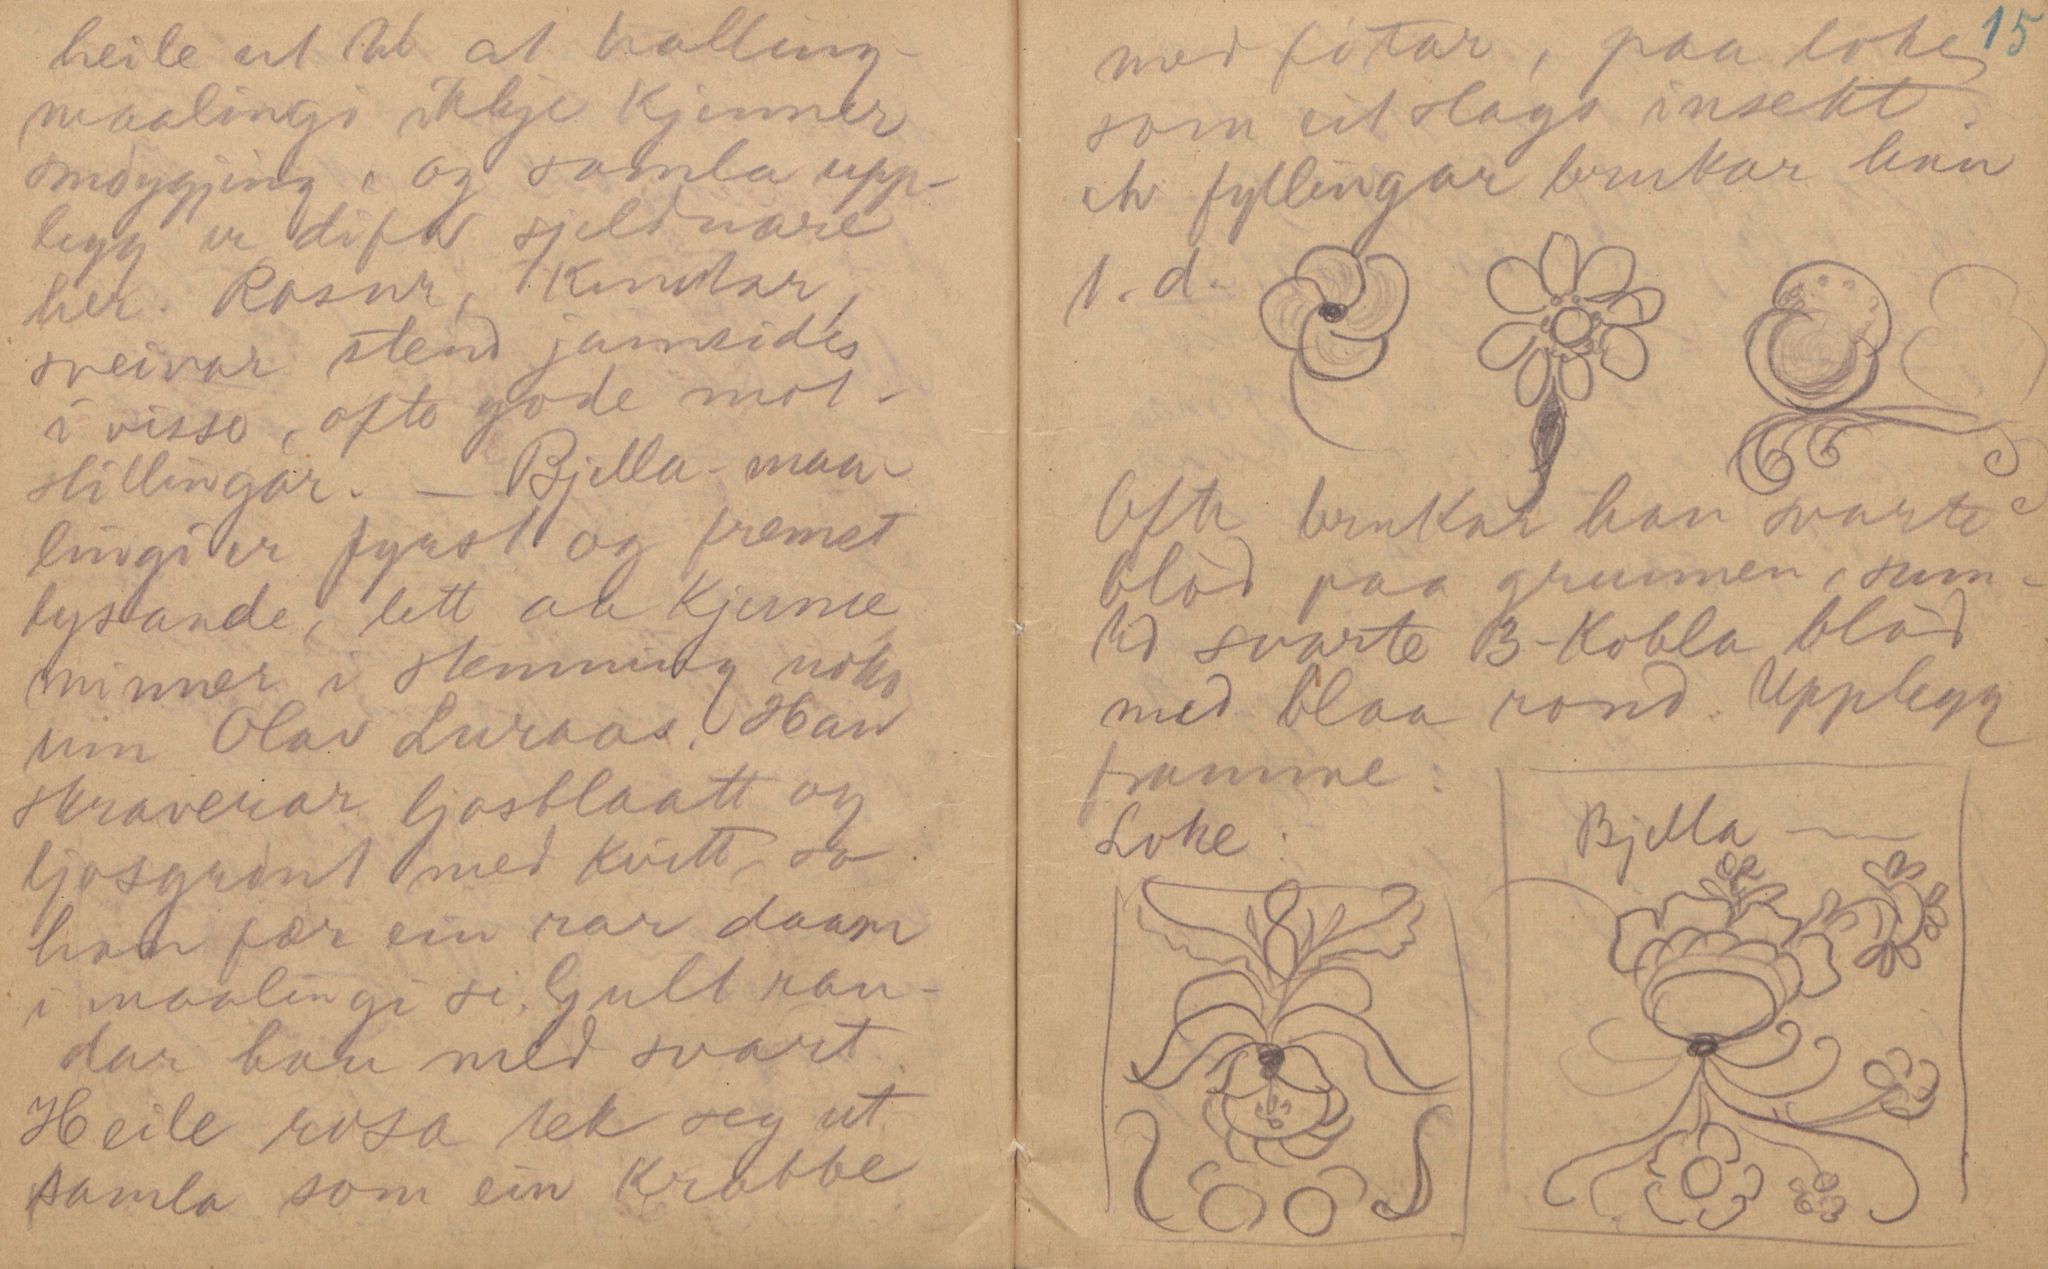 heile ut til at halling-
maalingi ikkje kjenner
smøygjing, og samla upp-
legg er difor sjeldnare
her. Rosur, Kunstar,
sveivar stend jamsides
i visse, ofte gode mot-
stillingar. — Bjella-maa-
lingi er fyrst og fremst
lysande, lett aa kjenne
minner i stemning noko
um Olav Luraas. Han
skraverar ljosblaatt og
ljosgrønt med kvitt, so
han fær ein rar daam
i maalingi si. Gult ran-
dar han med svart.
Heile rosa tek seg ut
samla som ein Krabbe
15
med føtar, paa loke
som eit slags insekt.
fyllingar brukar han
1. d.
Ofte brukar han svarte
blòd paa grunnen, sum-
tid svarte B-Kobla blòd
med blaa rond. Upplegg
framme:
Loke:
Bjella —